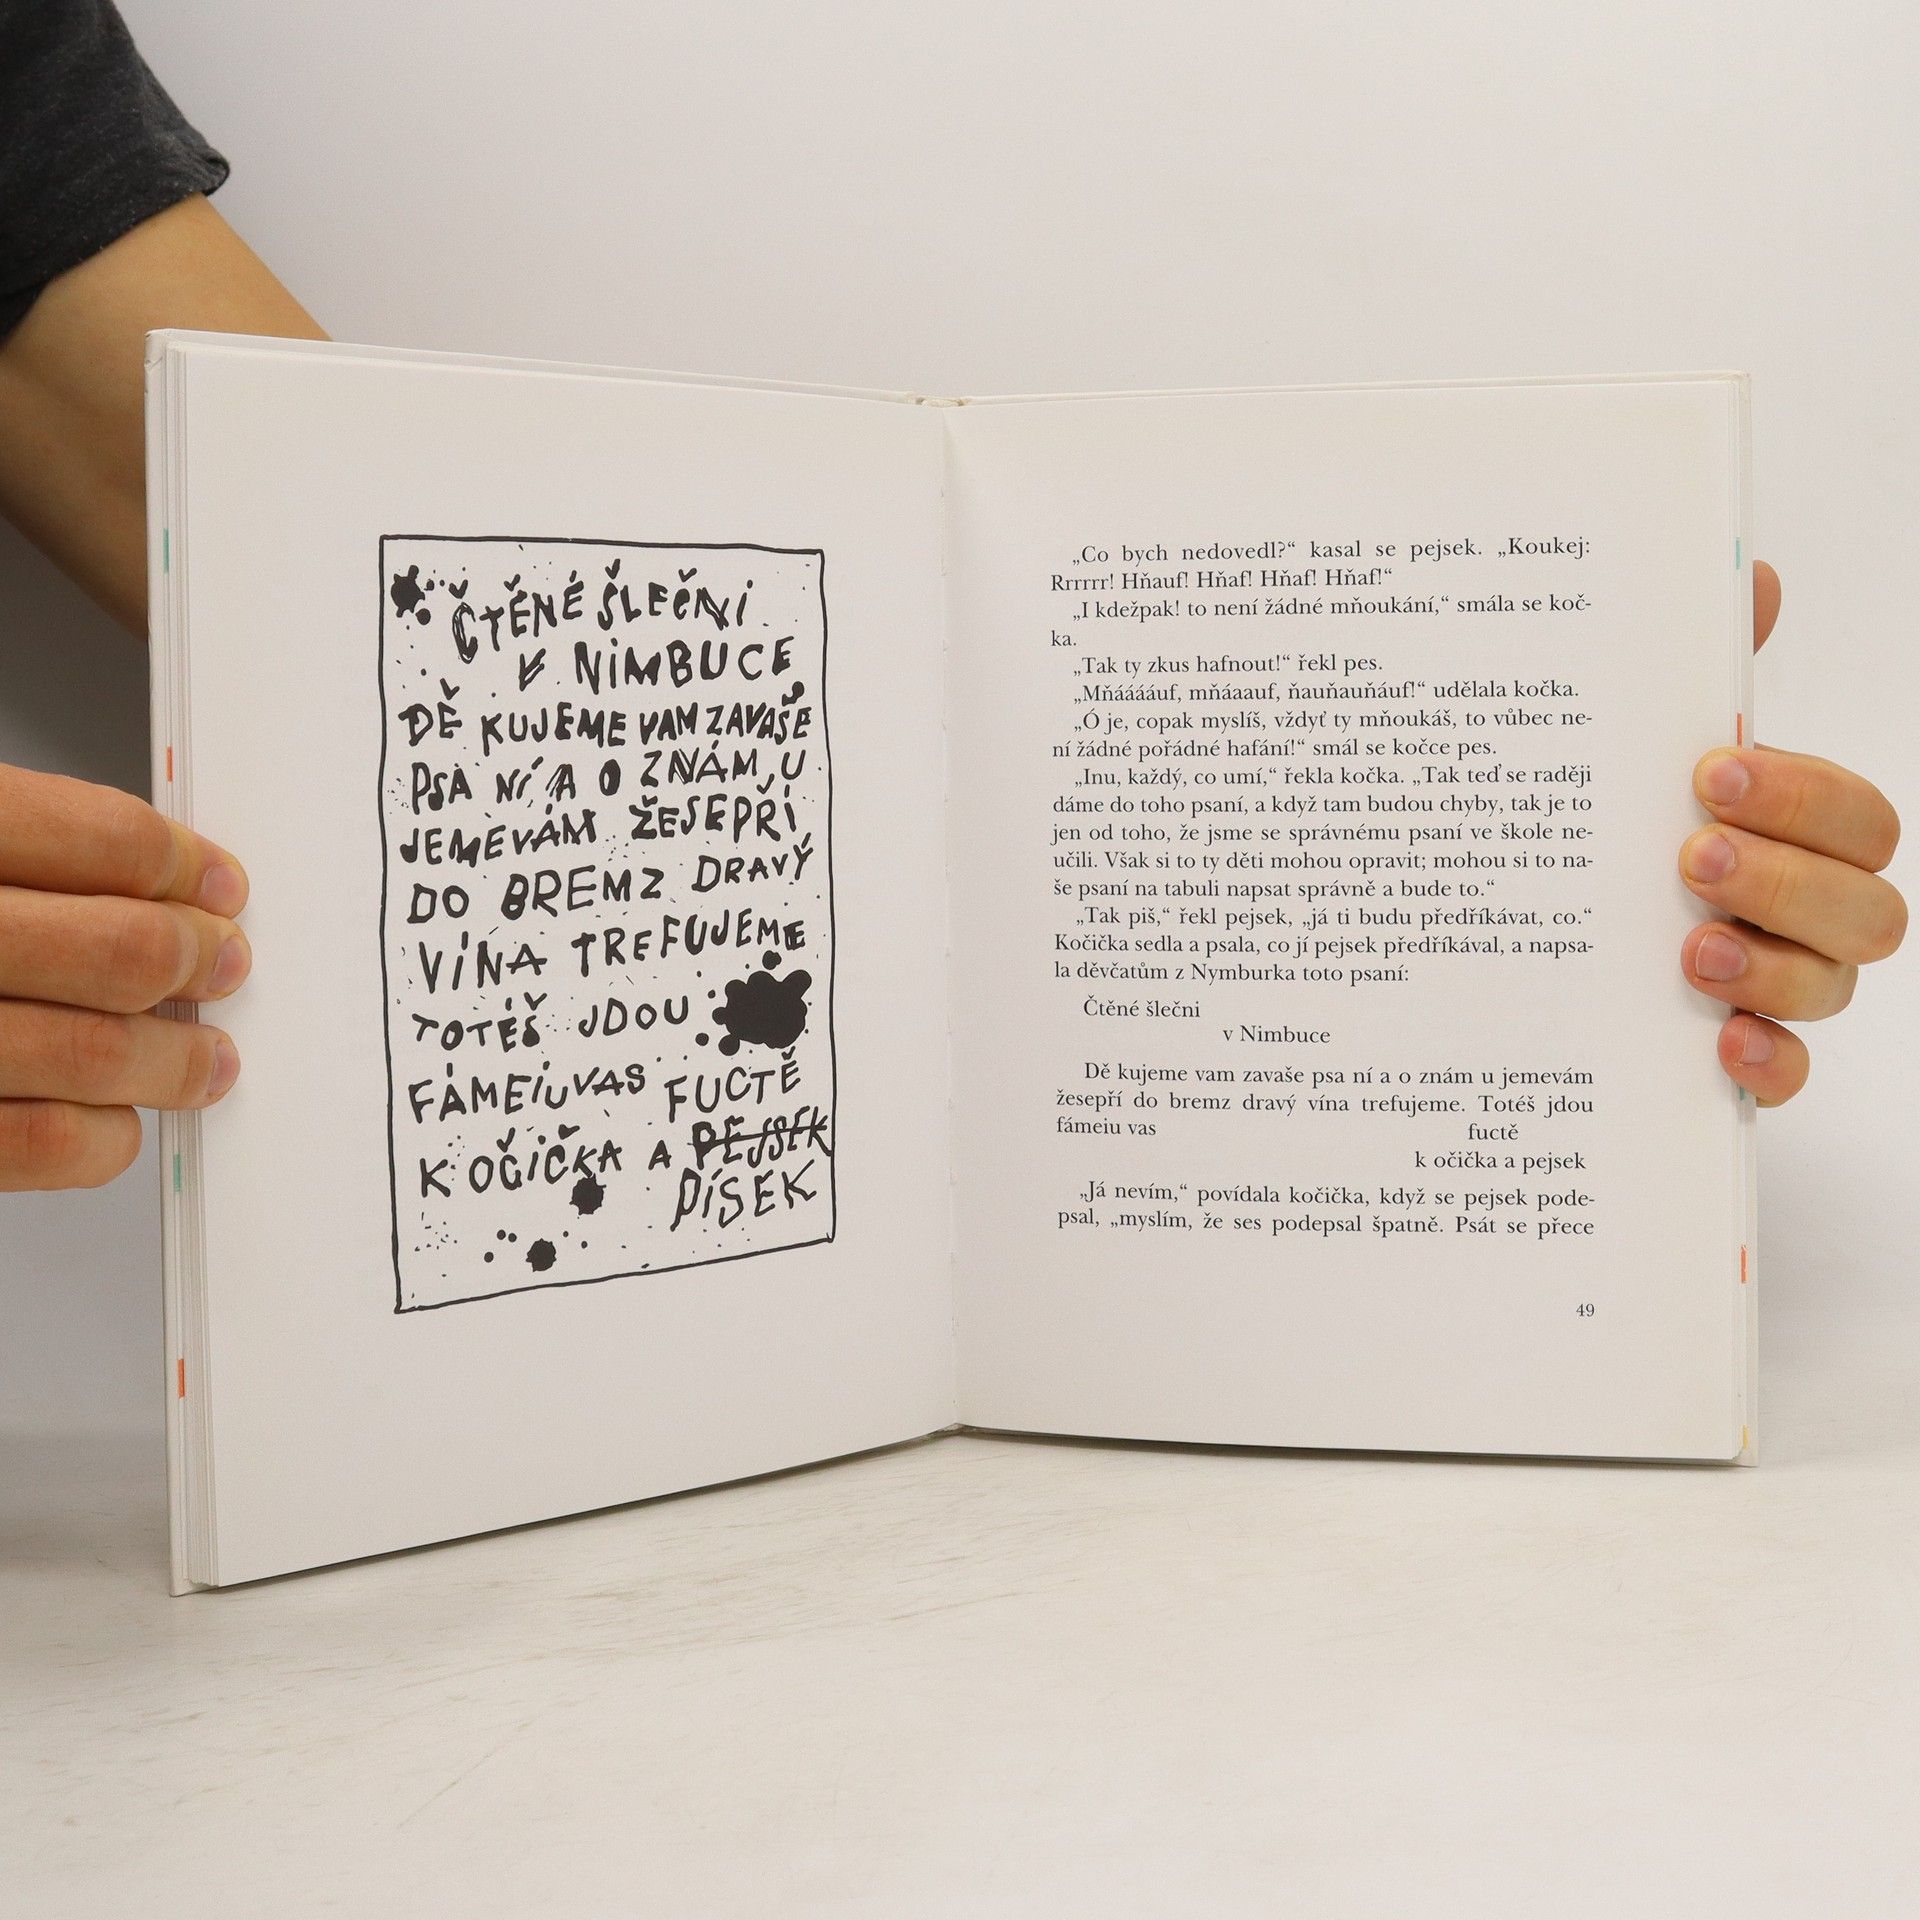 ČTĚNÉ ŠLEČNI
V NIMBUCE
DĚ KUJEME VAM ZAVAŠE
PSA NÍ A O ZNÁM U
JEMEVÁM ŽESEPŘÍ
DO BREMZ DRAVÝ
VÍNA TREFUJEME
TOTÉŠ JDOU
FÁMEIUVAS FUCTĚ
K OČIČKA A PEJSEK
PÍSEK
„Co bych nedovedl?“ kasal se pejsek. „Koukej:
Rrrrrr! Hňauf! Hňaf! Hňaf! Hňaf!“
„I kdežpak! to není žádné mňoukání,“ smála se koč-
ka.
„Tak ty zkus hafnout!“ řekl pes.
„Mňááááuf, mňáaauf, ňauňauňáuf!“ udělala kočka.
„Ó je, copak myslíš, vždyť ty mňoukáš, to vůbec ne-
ní žádné pořádné hafání!“ smál se kočce pes.
„Inu, každý, co umí,“ řekla kočka. „Tak teď se raději
dáme do toho psaní, a když tam budou chyby, tak je to
jen od toho, že jsme se správnému psaní ve škole ne-
učili. Však si to ty děti mohou opravit; mohou si to na-
še psaní na tabuli napsat správně a bude to.“
„Tak piš,“ řekl pejsek, „já ti budu předříkávat, co.“
Kočička sedla a psala, co jí pejsek předříkával, a napsa-
la děvčatům z Nymburka toto psaní:
Čtěné šlečni
v Nimbuce
Dě kujeme vam zavaše psa ní a o znám u jemevám
žesepří do bremz dravý vína trefujeme. Totéš jdou
fámeiu vas fuctě
k očička a pejsek
„Já nevím,“ povídala kočička, když se pejsek pode-
psal, „myslím, že ses podepsal špatně. Psát se přece
49